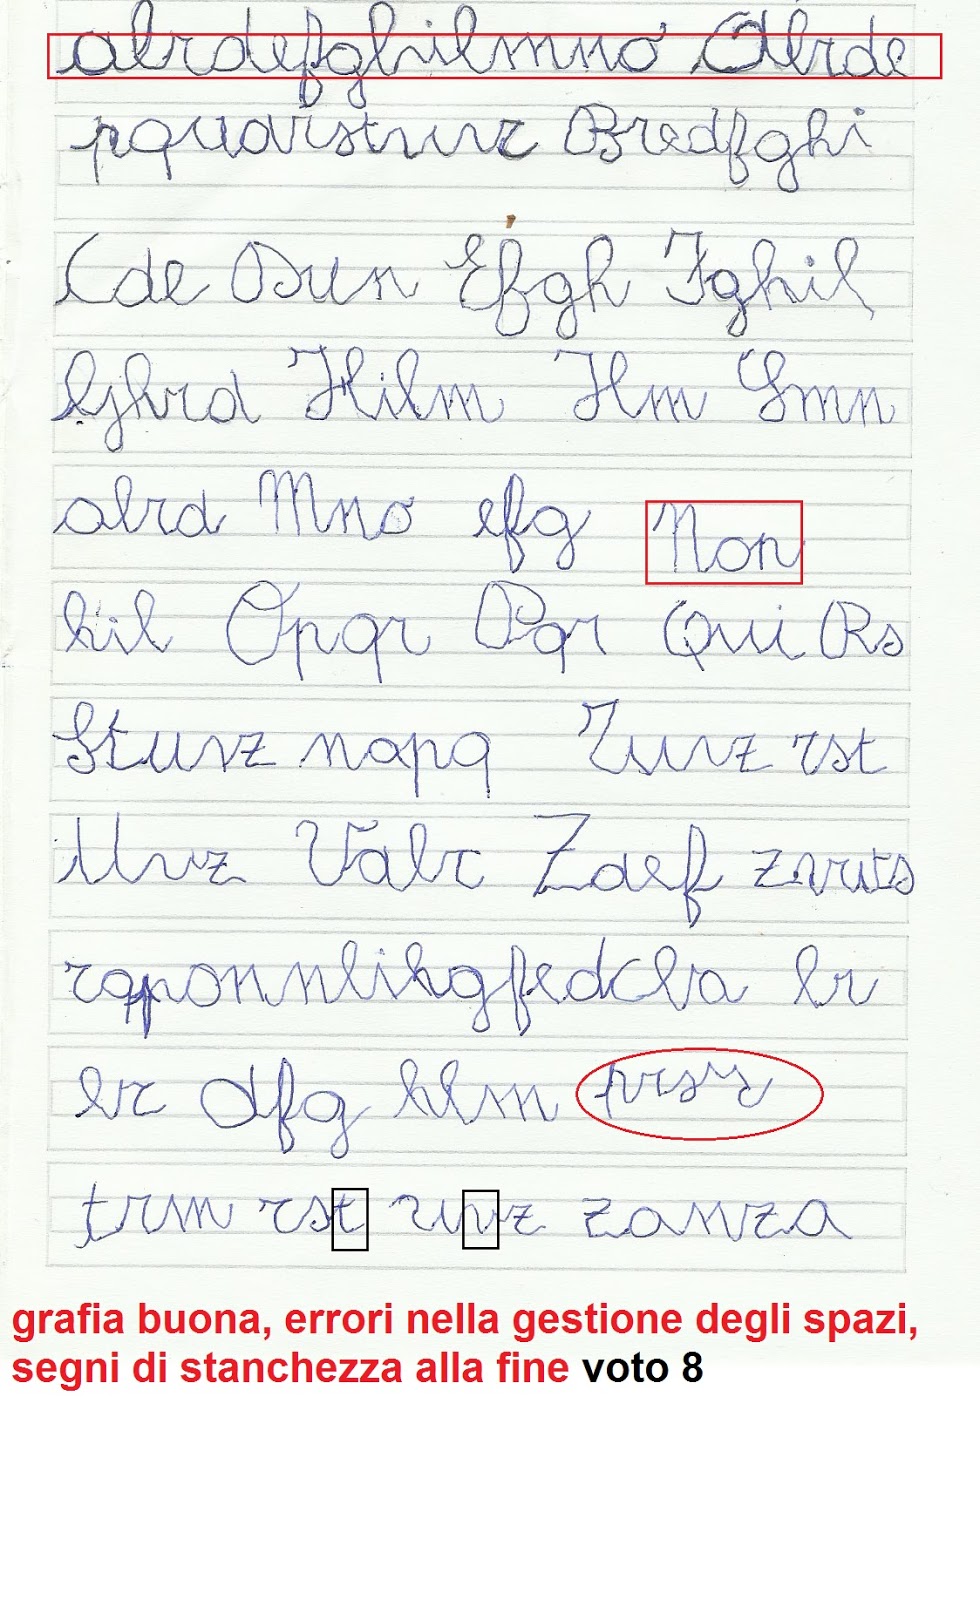 abrdefghilmno Abrde
pquarstuvz Bredfghi
Cde Dun Efgh Fghil
Hilm Ilm
abrd Mno efg Non
hil Opqr Pqr Qui Rs
Stuvz nopq Tuvz rst
Uvz Valr Zdef
dfg hlm
trm rst uvz zanza
grafia buona, errori nella gestione degli spazi,
segni di stanchezza alla fine voto 8